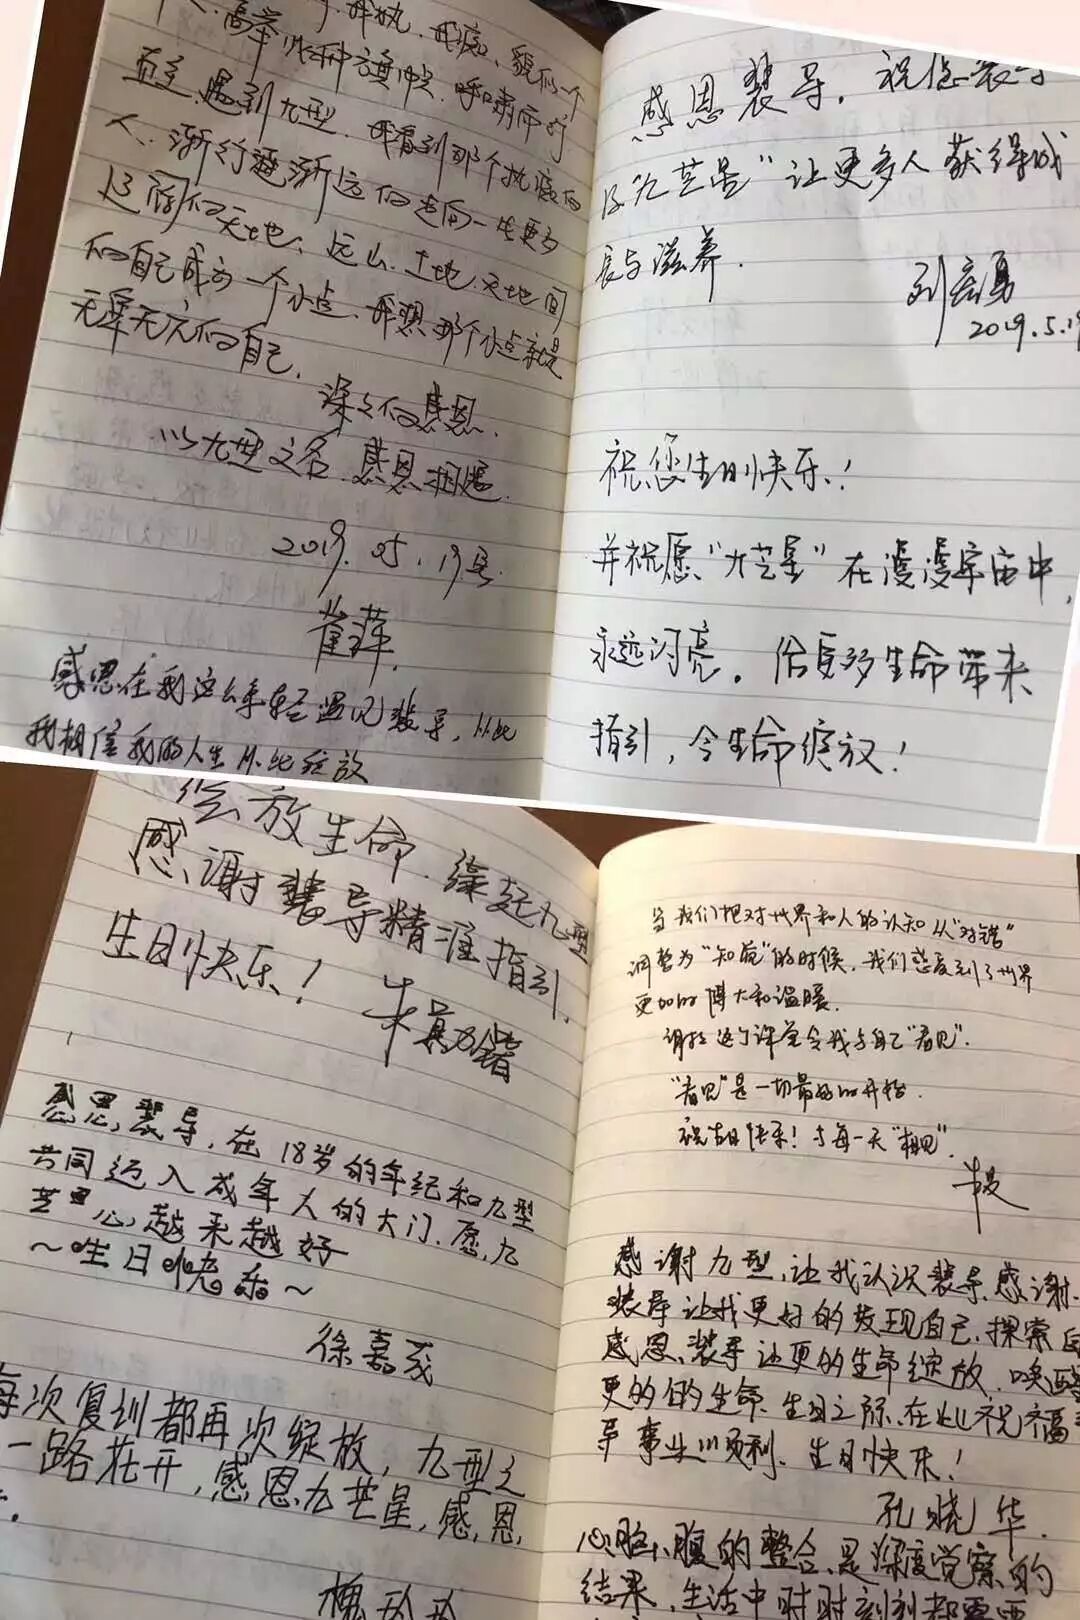 人、高举
直至遇到九型，我看到那个执
人、渐行渐远的走向
辽阔的天地，远山、土地、天地间
的自己成为一个小点，我想那个小点就是
无穷无尽的自己，
深深的感恩，
以九型之名，感恩相遇，
2019.05.19号
崔萍
感恩在我这么年轻遇见裴导，从此
我相信我的人生从此绽放
感恩裴导，祝您裴导
及“九芒星”让更多人获得成
长与滋养．
刘
2019.5.19
祝您生日快乐！
并祝愿“九芒星”在漫漫宇宙中，
永远闪亮。给更多生命带来
指引，令生命绽放！
绽放生命．缘起九型
感谢裴导精准指引．
生日快乐！
朱
感恩裴导，在18岁的年纪和九型
共同迈入成年人的大门．愿九
芒星越来越好
～生日快乐～
徐嘉茂
每次复训都再次绽放，九型之
一路花开，感恩九芒星，感恩
槐
当我们把对世界和人的认知从“对错”
调整为“知觉”的时候，我们感受到了世界
更加的博大和温暖．
谢谢这个课堂令我与自己“看见”．
“看见”是一切最好的开始．
祝生日快乐！与每一天“相见”．
感谢九型，让我认识裴导，感谢
裴导让我更好的发现自己，探索自
感恩裴导让更多的生命绽放，唤醒
更多的生命．生日之际，在此祝福
导事业顺利．生日快乐！
孔晓华．
心、脑、腹的整合，是深度觉察的
结果，生活中时时刻刻都要